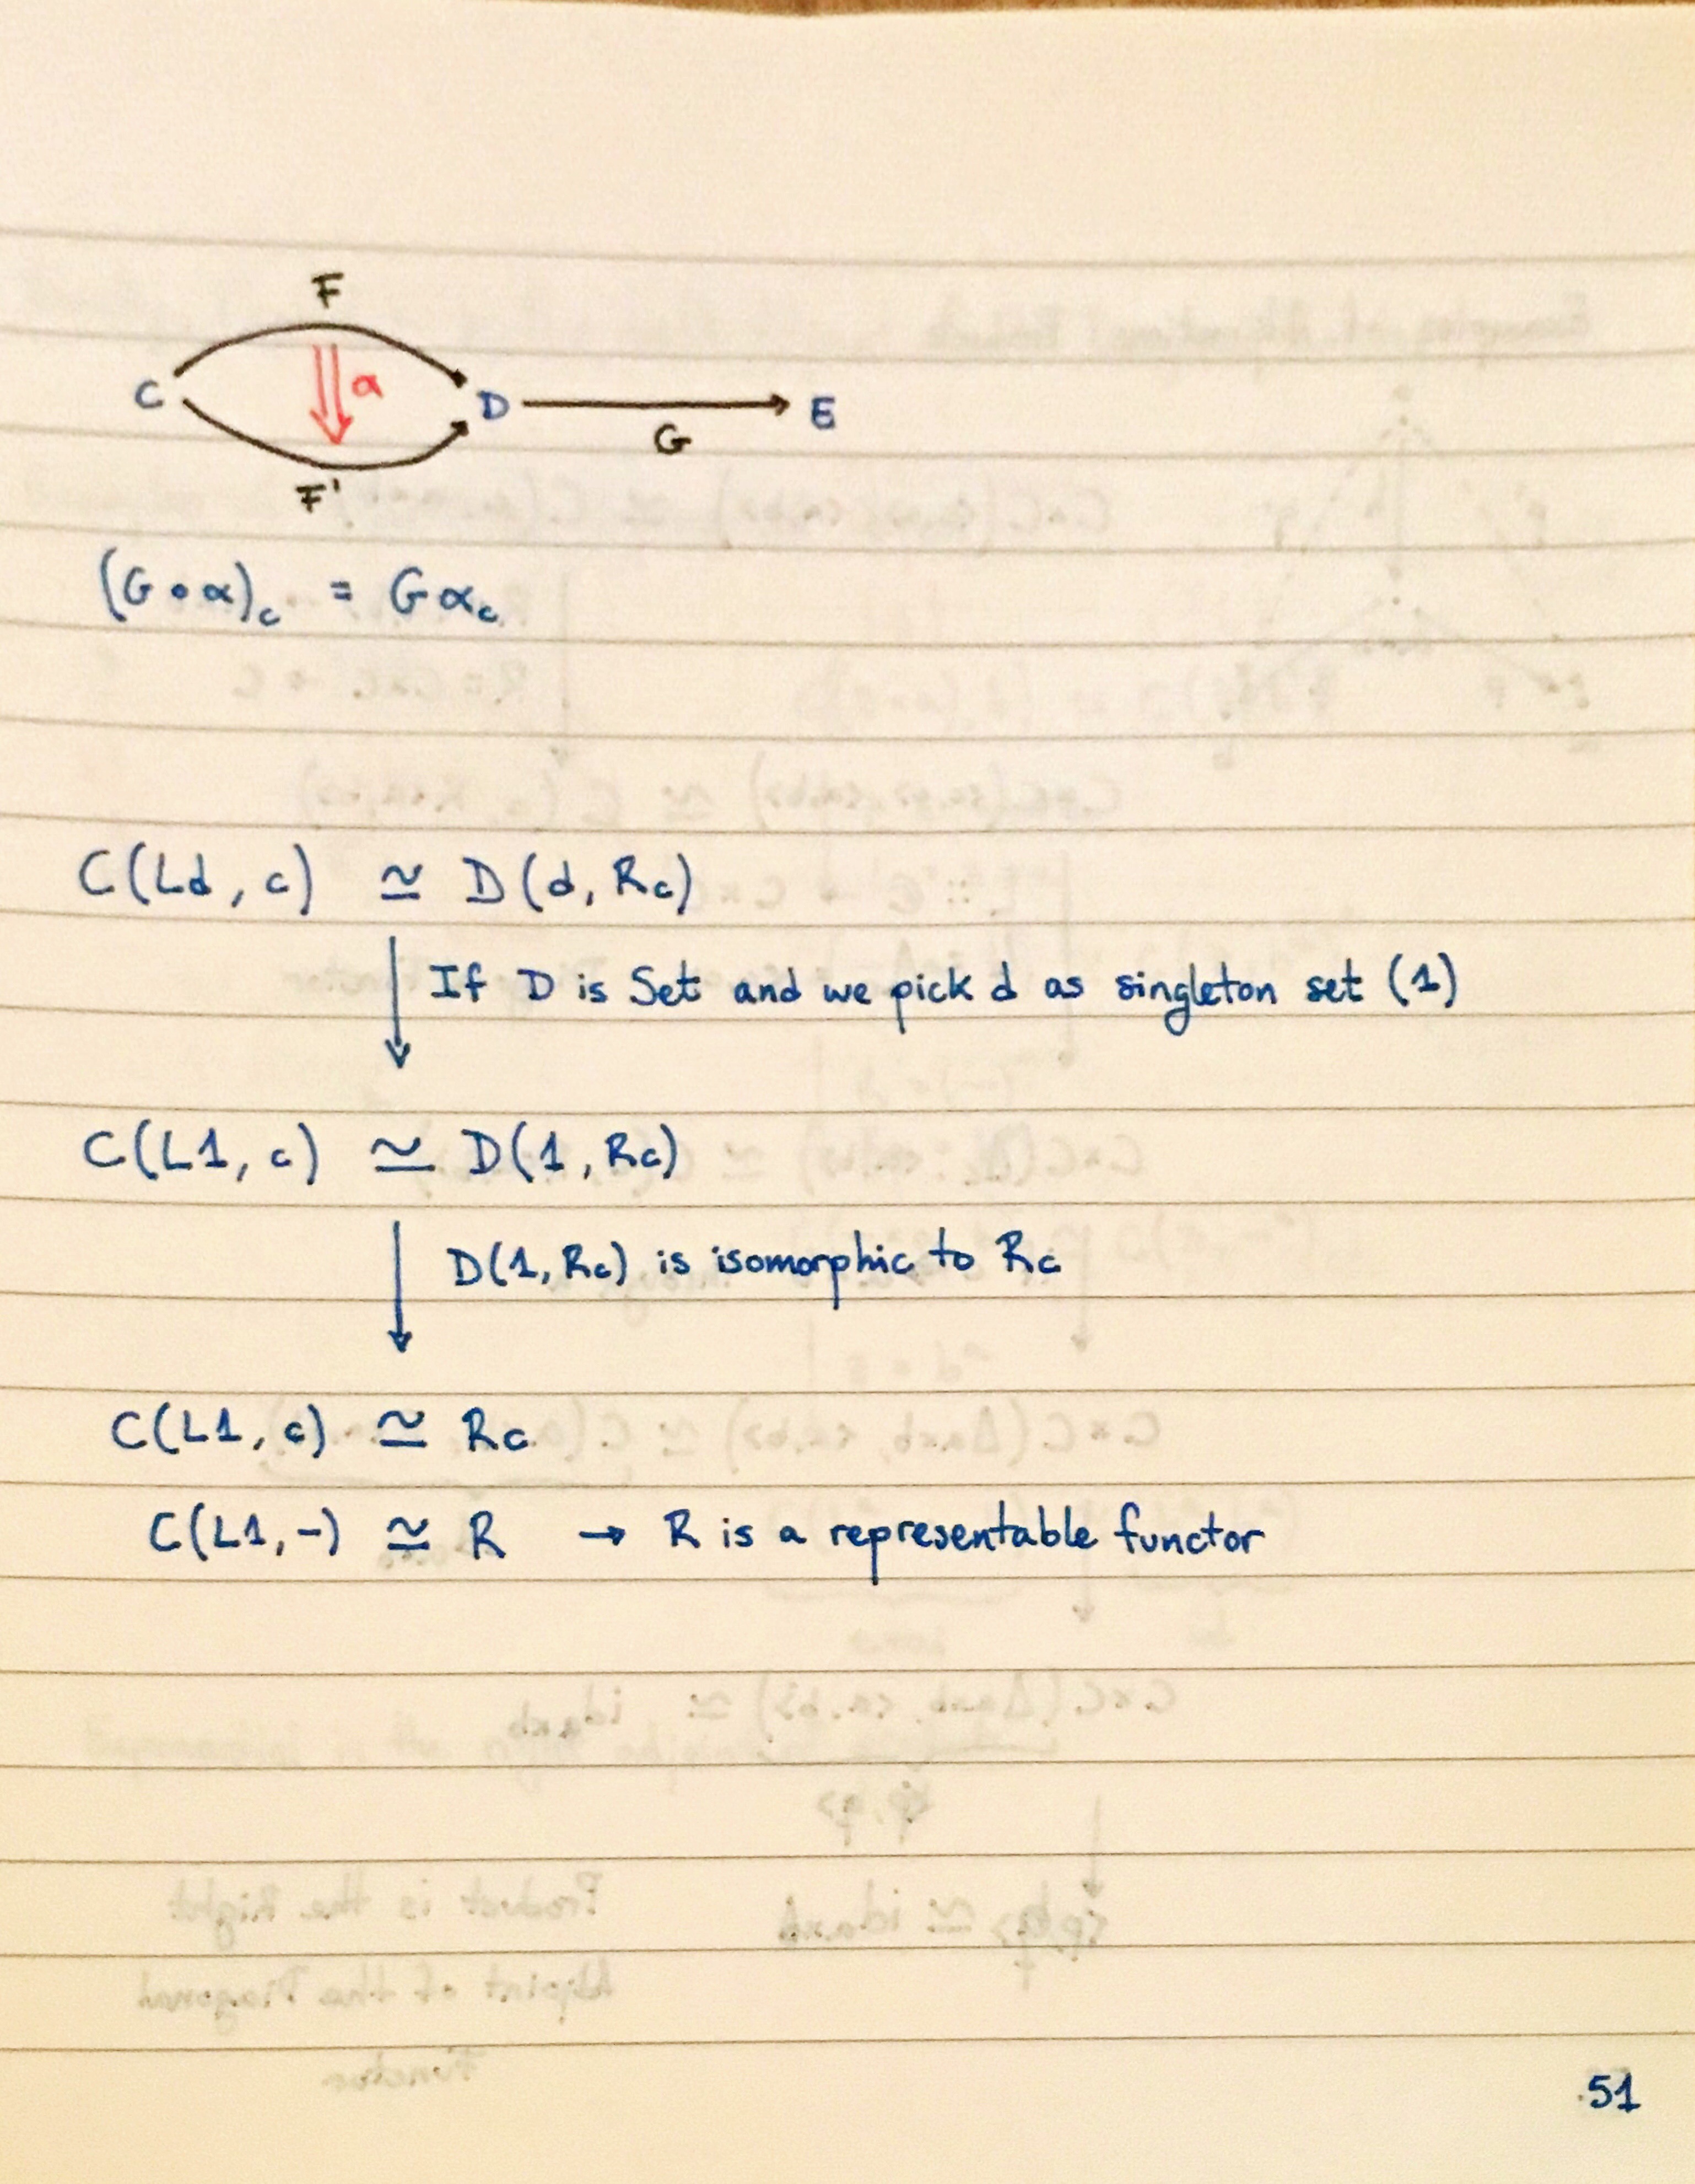 F
C α D E
G
F'
(G ∘ α)c = Gαc
C(Ld, c) ≃ D(d, Rc)
If D is Set and we pick d as singleton set (1)
C(L1, c) ≃ D(1, Rc)
D(1, Rc) is isomorphic to Rc
C(L1, c) ≃ Rc
C(L1, -) ≃ R → R is a representable functor
51